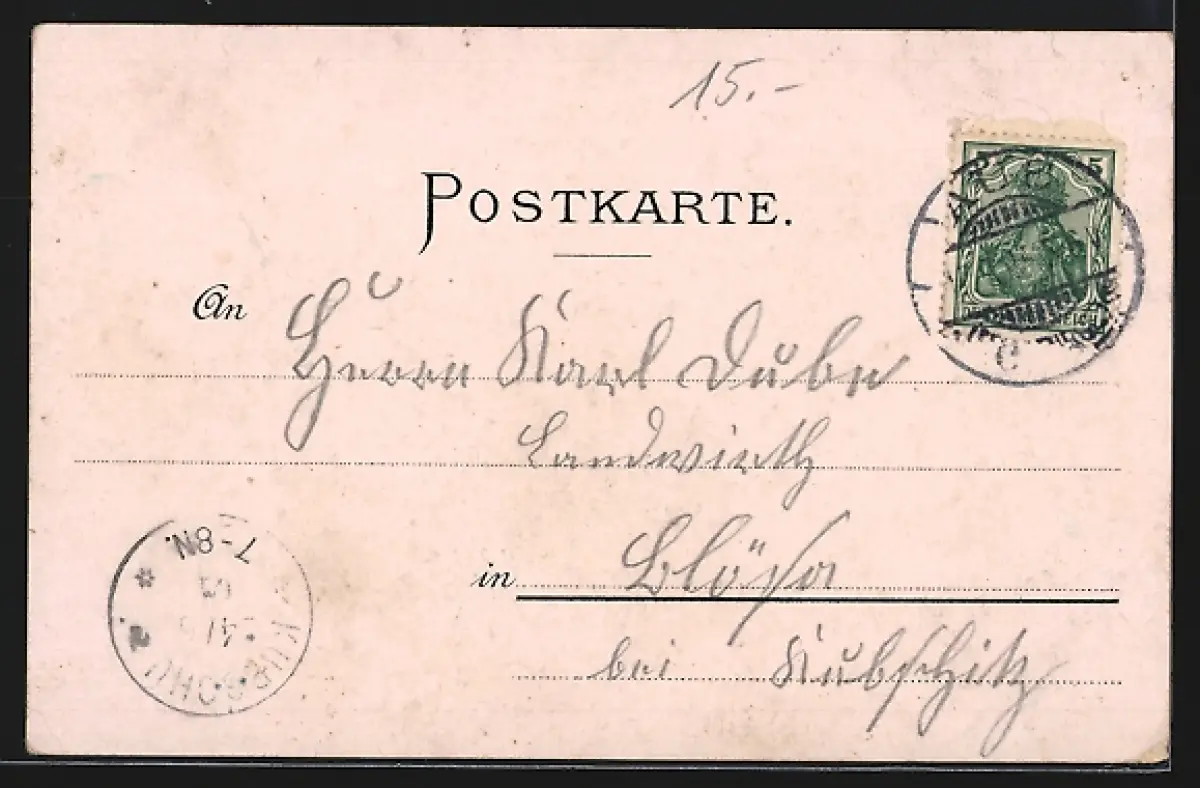 15.-
POSTKARTE.
An
Herrn Karl Dube
Landwirth
in Blösa
bei Kubschitz
5
REICH
C
7-8N.
* KUBSCHÜ